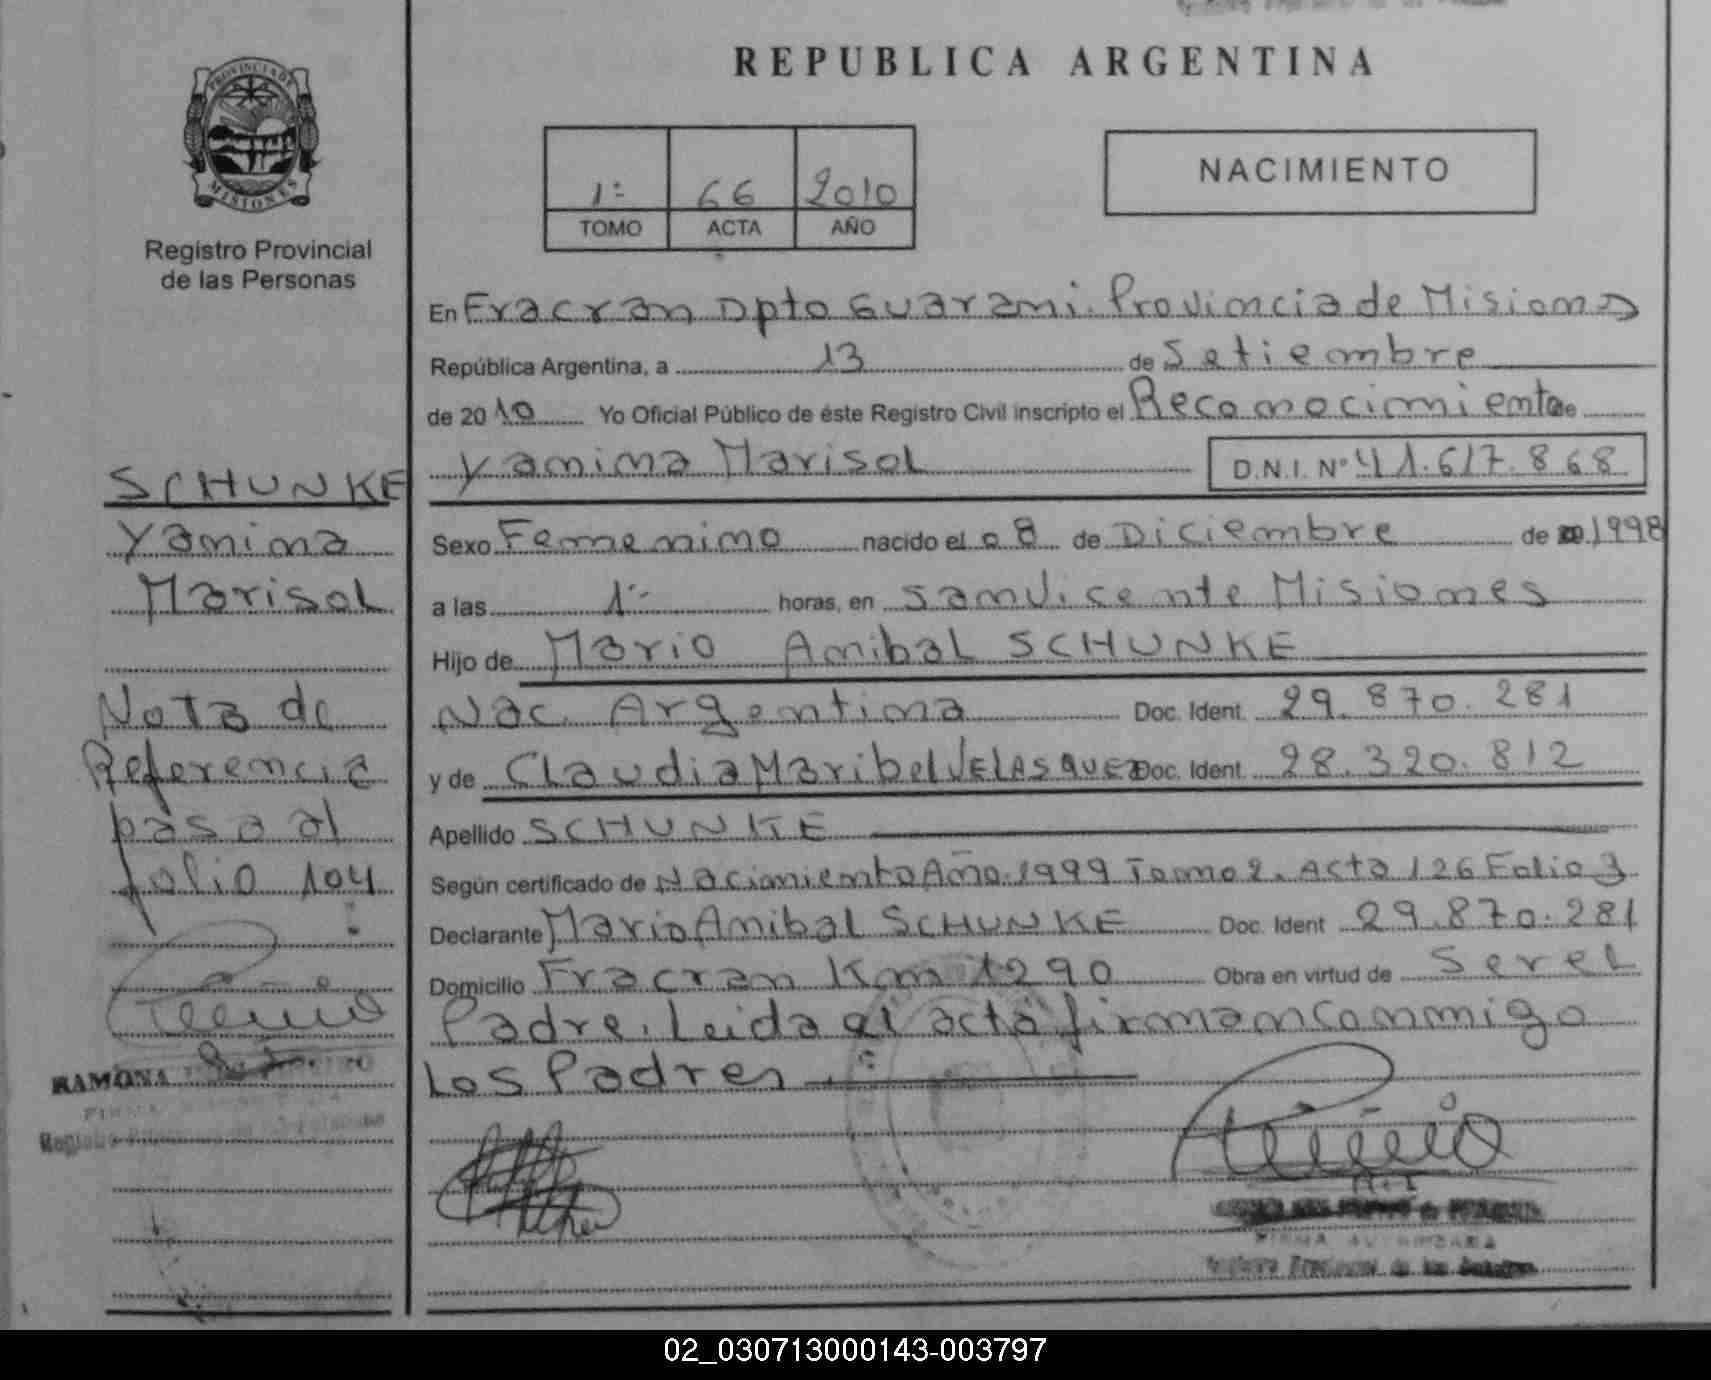 PROVINCIA DE
MISIONES
Registro Provincial
de las Personas
SCHUNKE
Yanina
Marisol
Nota de
Referencia
pasa al
folio 104
RAMONA
REPUBLICA ARGENTINA
1º 66 2010
TOMO ACTA AÑO
NACIMIENTO
En Fracran Dpto Guarani. Provincia de Misiones
República Argentina, a 13 de Setiembre
de 2010 Yo Oficial Público de éste Registro Civil inscripto el Reconocimiento de
Yanina Marisol D.N.I. Nº 41.617.868
Sexo Femenino nacido el 08 de Diciembre de 1998
a las 1- horas, en San Vicente Misiones
Hijo de Mario Anibal SCHUNKE
Nac. Argentina Doc. Ident. 29.870.281
y de Claudia Maribel VELASQUEZ Doc. Ident. 28.320.812
Apellido SCHUNKE
Según certificado de Nacimiento Año 1999 Tomo 2. Acta 126 Folio 3
Declarante Mario Anibal SCHUNKE Doc. Ident 29.870.281
Domicilio Fracran Km 1290 Obra en virtud de Ser el
Padre. Leida el acta firman conmigo
Los Padres
FIRMA AUTORIZADA
Registro Provincial de las Personas
02_030713000143-003797